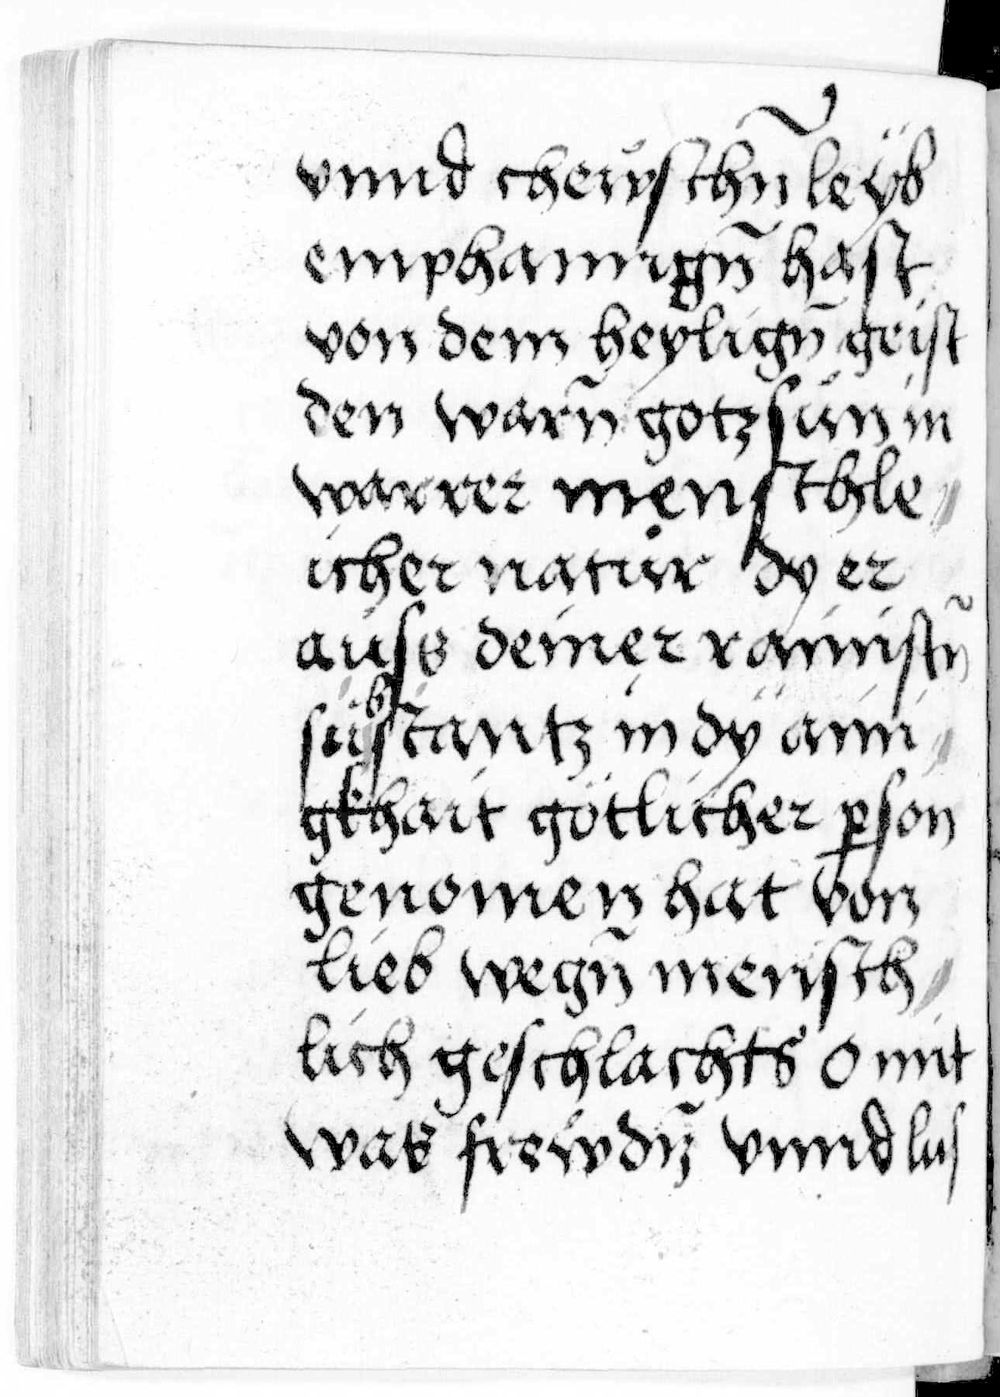 vnnd cheẅschn̄ leÿb
emphanngn̄ hast
von dem heylign̄ geist
den warn̄ gotz sun in
warrer menschle⸗
icher natur dy er
auss deiner rainistn̄
substantz in dÿ aini⸗
gkhait götlicher ꝑson
genomen hat von
lieb wegn̄ mensch⸗
lich geschlachts o mit
was frewdn̄ vnnd lus